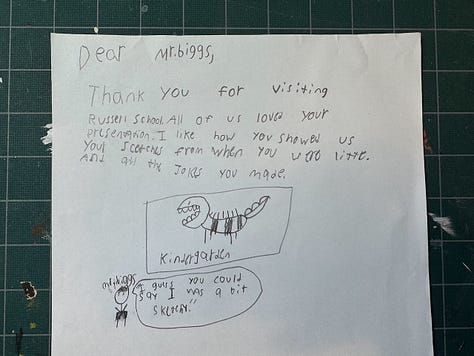 Dear Mr.biggs,
Thank you for visiting
Russell School. All of us loved your
presentation. I like how you showed us
your scetches from when you were little.
And all the Jokes you made.
Kindergarden
mr.biggs
I guess you could
say I was a bit
sketchy."